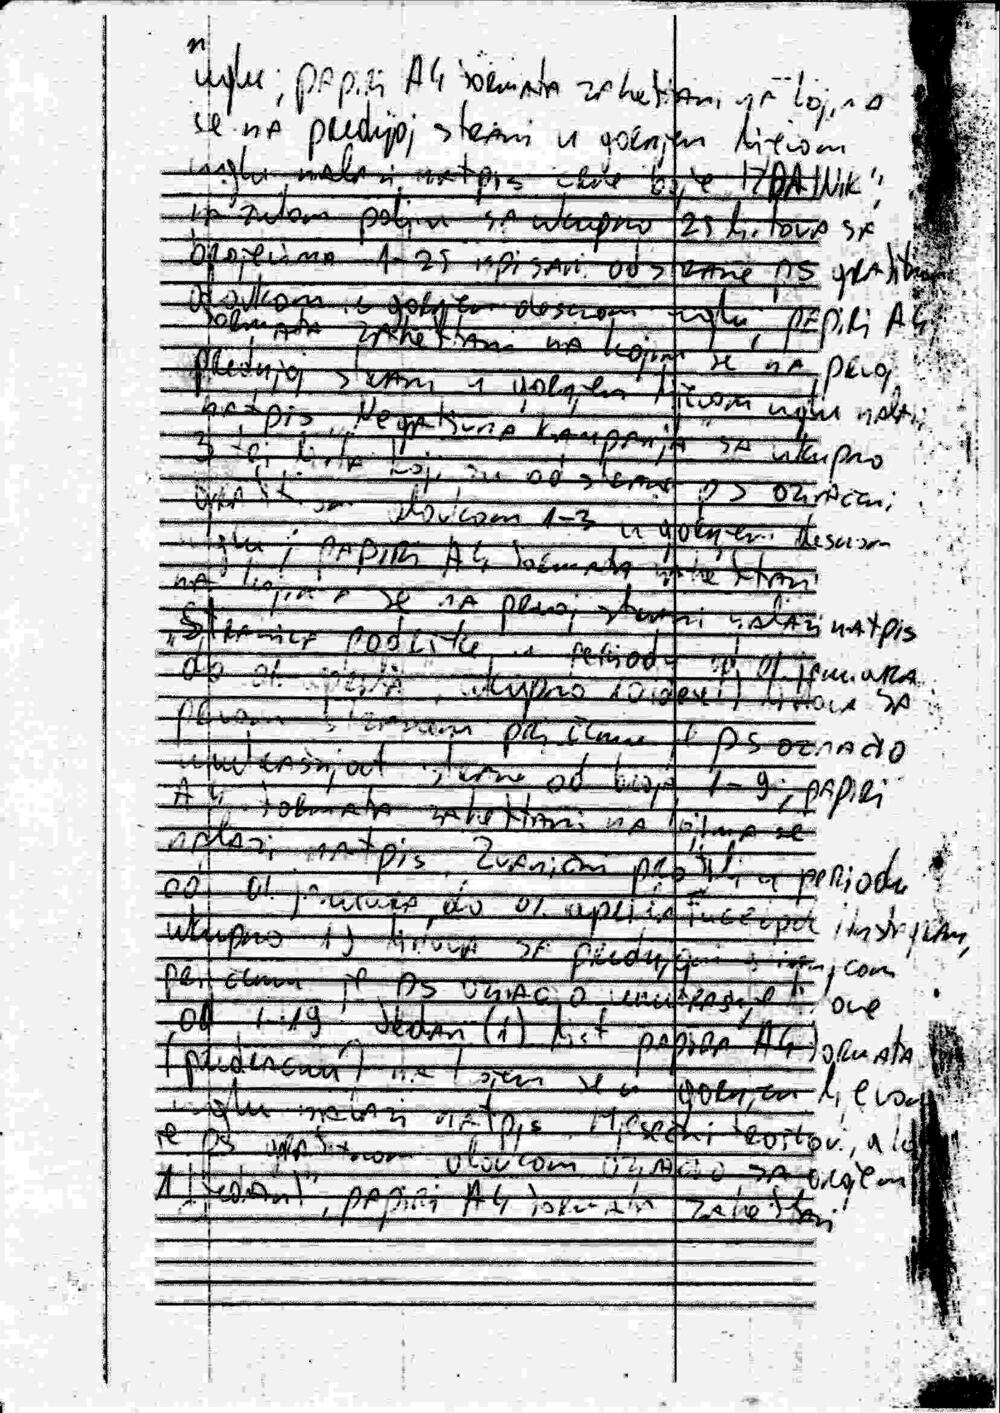 uglu; papiri A4 formata zaheftani na kojima
se na prednjoj strani u gornjem lijevom
uglu nalazi natpis crne boje "IZDAJNIK",
na žutom polju sa ukupno 25 listova sa
brojevima 1-25 ispisani od strane PS grafitnom
olovkom u gornjem desnom uglu, papiri A4
formata zaheftani na kojim se na prvoj
prednjoj strani u gornjem lijevom uglu nalazi
natpis "Negativna kampanja" sa ukupno
3 tri lista koji su od strane PS označeni
grafitnom olovkom 1-3 u gornjem desnom
uglu; papiri A4 formata zaheftani
na kojima se na prvoj strani nalazi natpis
"Stranice podrške u periodu od 01. januara
do 01. aprila, ukupno listova sa
prvom stranom pri čemu je PS označio
od broja 1-9; papiri
A4 formata zaheftani na kojima se
nalazi natpis Zvanični profili u periodu
od 01. januara do 01. aprila Facebook i instagram,
ukupno 19 listova sa prednjom stranicom
pri čemu je PS označio ove
od 1-19 Jedan (1) list papira A4 formata
na kojem se u gornjem lijevom
uglu nalazi natpis Mjesečni troškovi, a koji
je PS grafitnom olovkom označio sa brojem
1 (jedan)", papiri A4 formata zaheftani